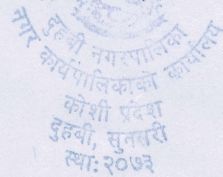 दुहवी नगरपालिका
नगर कार्यपालिकाको कार्यालय
कोशी प्रदेश
दुहवी, सुनसरी
स्था: २०७३